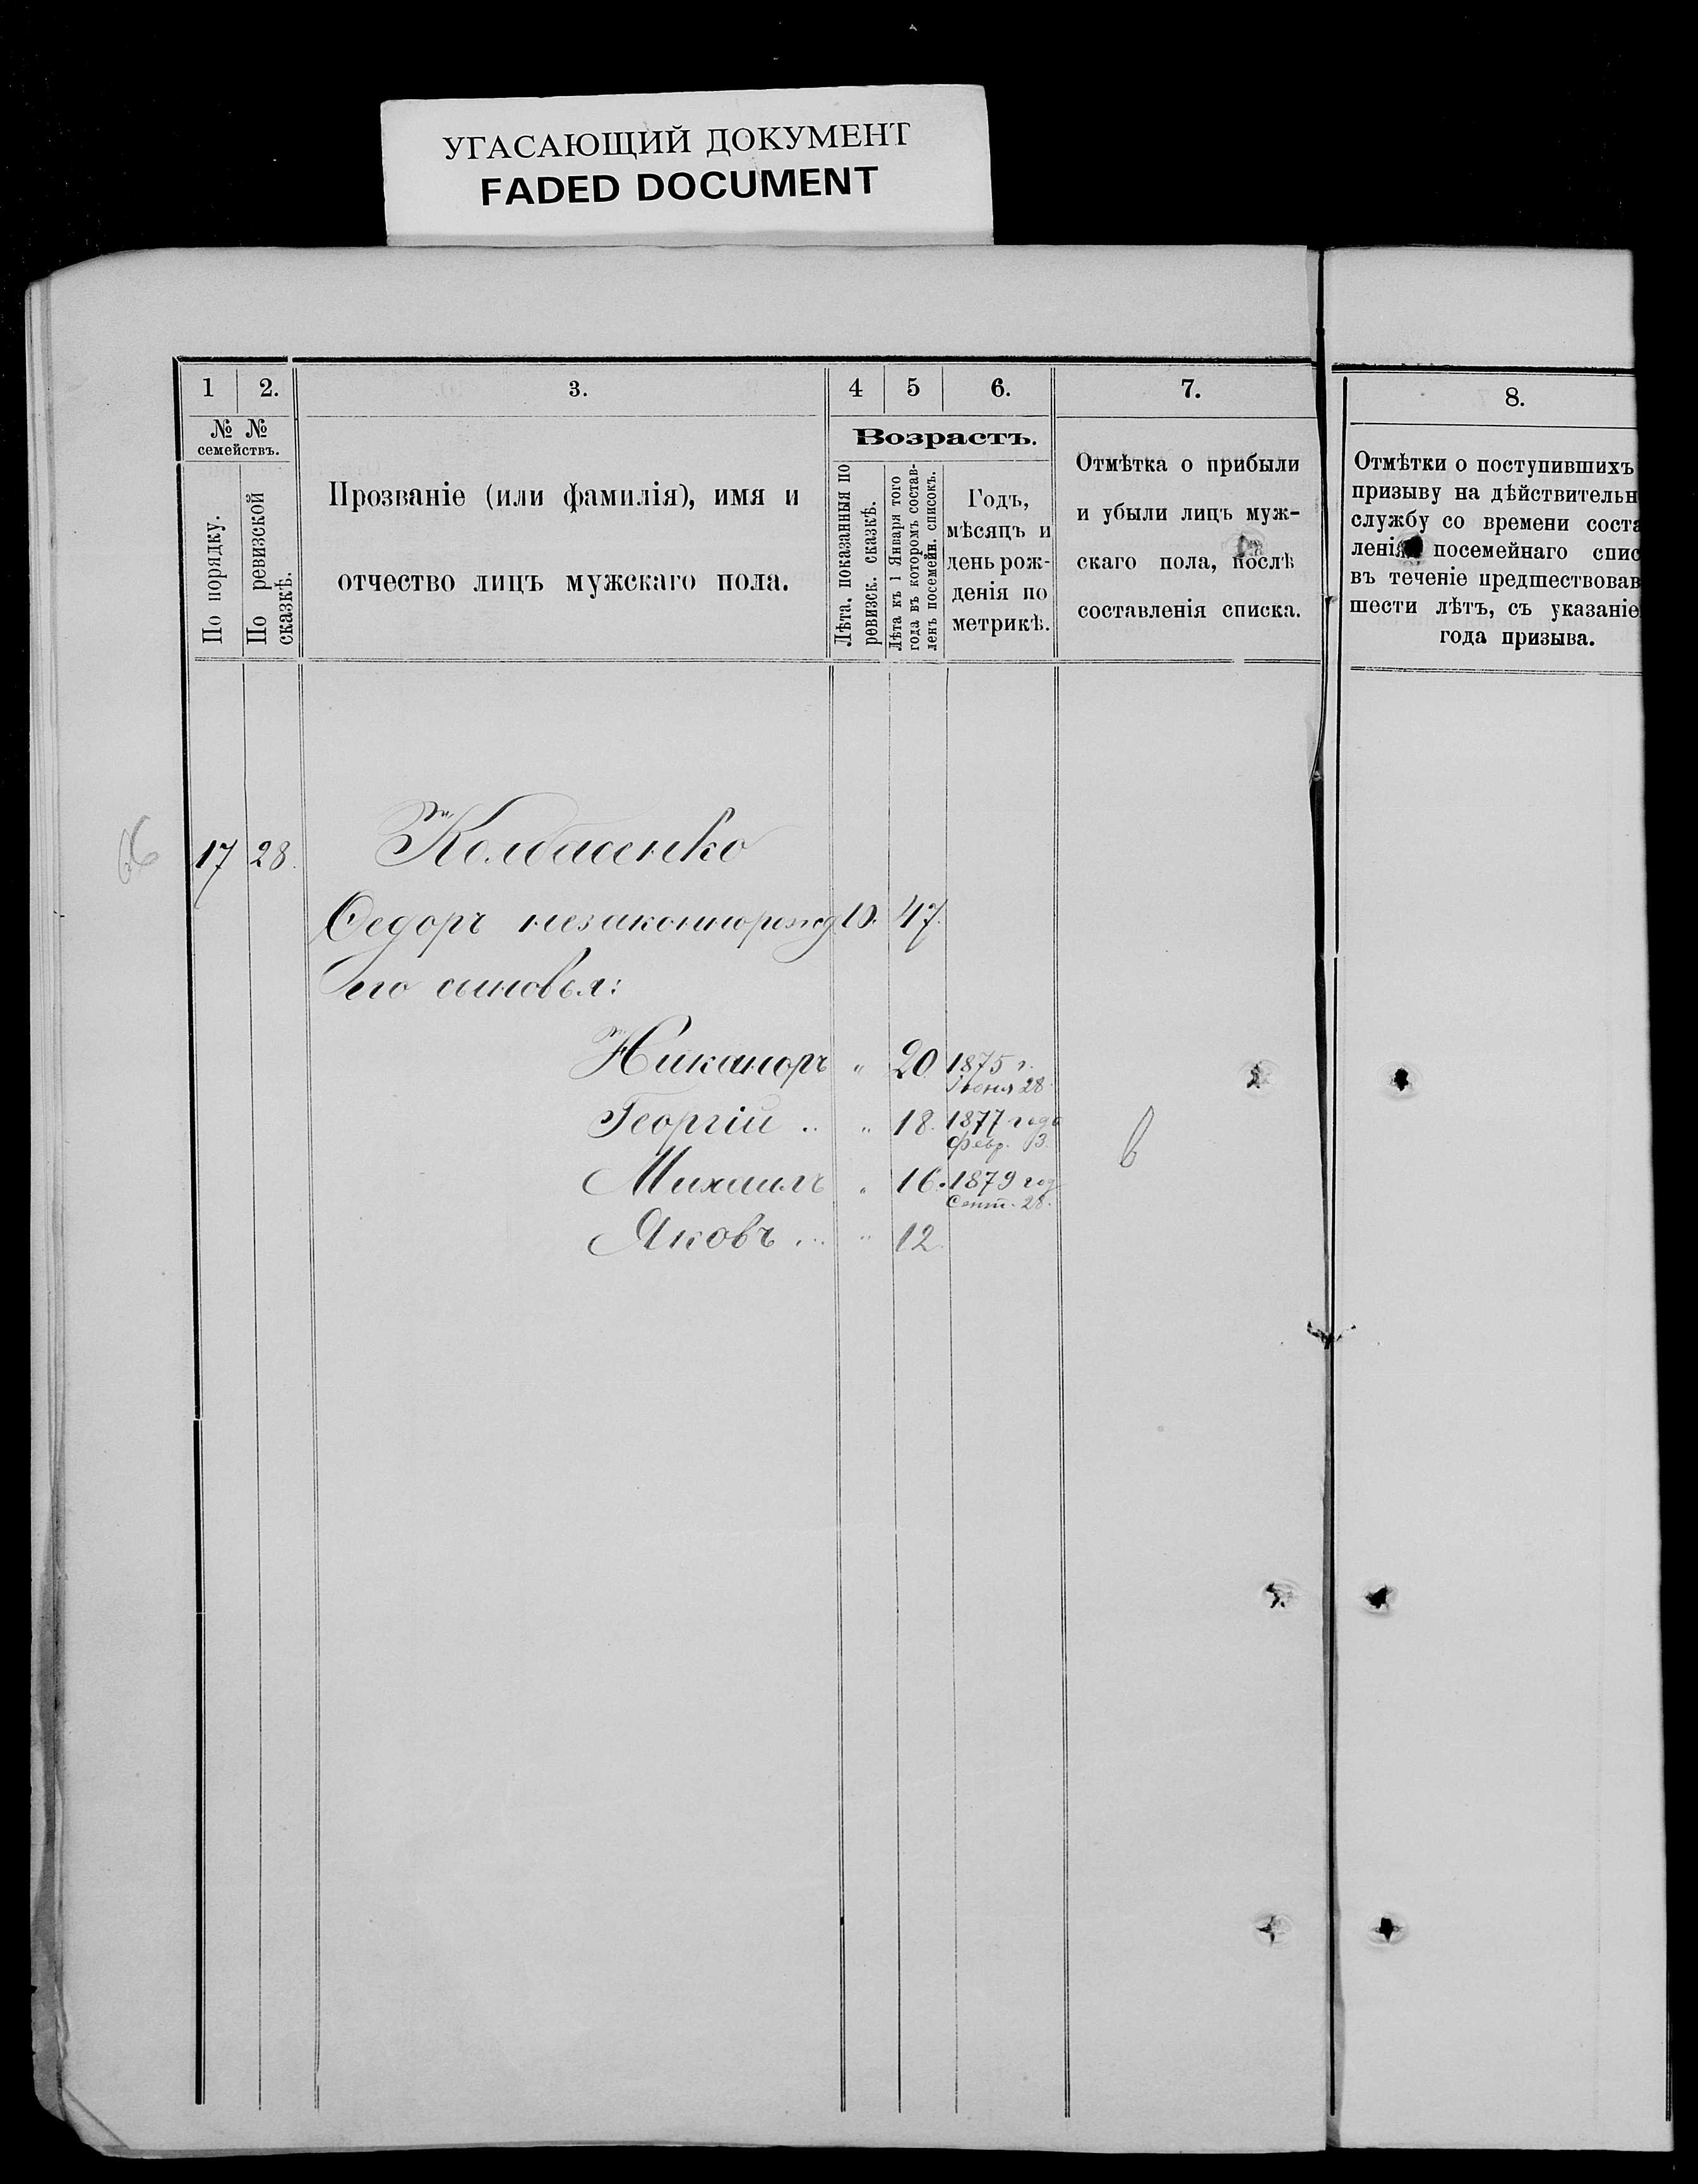 УГАСАЮЩИЙ ДОКУМЕНТ
FADED DOCUMENT
1 2. 3. 4 5 6. 7. 8.
№ №
семействъ.
По порядку.
По ревизской
сказкѣ.
Прозваніе (или фамилія), имя и
отчество лицъ мужскаго пола.
Возрастъ.
Лѣта, показанныя по
ревизск. сказкѣ.
Лѣта къ 1 Января того
года въ которомъ состав-
ленъ посемейн. списокъ.
Годъ,
мѣсяцъ и
день рож-
денія по
метрикѣ.
Отмѣтка о прибыли
и убыли лицъ муж-
скаго пола, послѣ
составленія списка.
Отмѣтки о поступившихъ
призыву на дѣйствительн
службу со времени соста
ленія посемейнаго спис
въ теченіе предшествовав
шести лѣтъ, съ указаніе
года призыва.
66 17 28. Колбасенко
Ѳедоръ незаконнорожд 10. 47.
его сыновья:
Никаноръ " 20 1875 г.
Іюня 28
Георгій .. " 18. 1877 года
Февр. 3.
Михаилъ " 16. 1879 год
Сент. 28.
Яковъ ... " 12.